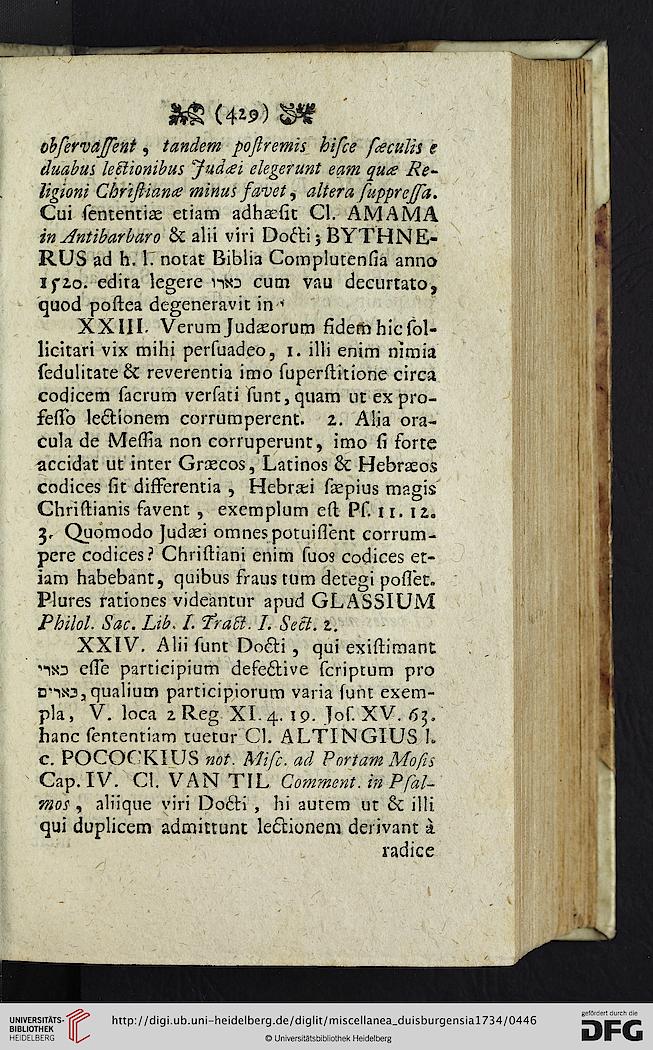 (429)
obſervaſſent, tandem poſtremis hiſce ſæculis e
duabus lectionibus Judæi elegerunt eam quæ Re-
ligioni Chriſtianæ minus favet, altera ſuppreſſa.
Cui ſententiæ etiam adhæſit Cl. AMAMA
in Antibarbaro & alii viri Docti; BYTHNE-
RUS ad h. l. notat Biblia Complutenſia anno
1520. edita legere כארו cum vau decurtato,
quod poſtea degeneravit in י
XXIII. Verum Judæorum fidem hic ſol-
licitari vix mihi perſuadeo, 1. illi enim nimia
ſedulitate & reverentia imo ſuperſtitione circa
codicem ſacrum verſati ſunt, quam ut ex pro-
feſſo lectionem corrumperent. 2. Alia ora-
cula de Meſſia non corruperunt, imo ſi forte
accidat ut inter Græcos, Latinos & Hebræos
codices ſit differentia, Hebræi ſæpius magis
Chriſtianis favent, exemplum eſt Pſ. 11. 12.
3. Quomodo Judæi omnes potuiſſent corrum-
pere codices? Chriſtiani enim ſuos codices et-
iam habebant, quibus fraus tum detegi poſſet.
Plures rationes videantur apud GLASSIUM
Philol. Sac. Lib. I. Tract. I. Sect. 2.
XXIV. Alii ſunt Docti, qui exiſtimant
כארי eſſe participium defective ſcriptum pro
כארים, qualium participiorum varia ſunt exem-
pla, V. loca 2 Reg XI. 4. 19. Joſ. XV. 63.
hanc ſententiam tuetur Cl. ALTINGIUS l.
c. POCOCKIUS not. Miſc. ad Portam Moſis
Cap. IV. Cl. VAN TIL Comment. in Pſal-
mos, aliique viri Docti, hi autem ut & illi
qui duplicem admittunt lectionem derivant à
radice
UNIVERSITÄTS-
BIBLIOTHEK
HEIDELBERG
http://digi.ub.uni-heidelberg.de/diglit/miscellanea_duisburgensia1734/0446
© Universitätsbibliothek Heidelberg
gefördert durch die
DFG